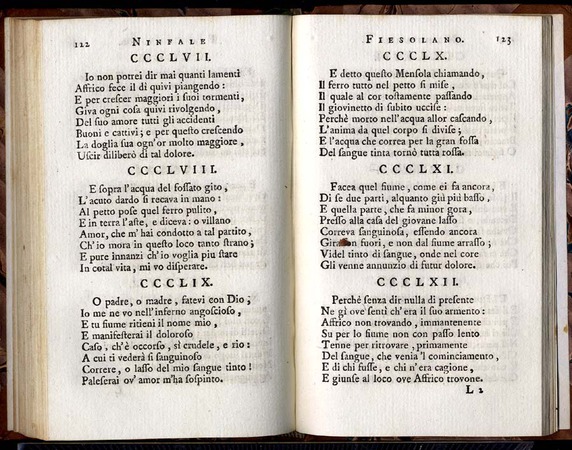 122 NINFALE
CCCLVII.
Io non potrei dir mai quanti lamenti
Affrico fece il dì quivi piangendo:
E per crescer maggiori i suoi tormenti,
Giva ogni cosa quivi rivolgendo,
Del suo amore tutti gli accidenti
Buoni e cattivi; e per questo crescendo
La doglia sua ogn'or molto maggiore,
Uscir diliberò di tal dolore.
CCCLVIII.
E sopra l'acqua del fossato gito,
L'acuto dardo si recava in mano:
Al petto pose quel ferro pulito,
E in terra l'aste, e diceva: o villano
Amor, che m'hai condotto a tal partito,
Ch'io mora in questo loco tanto strano;
E pure innanzi ch'io voglia più stare
In cotal vita, mi vo disperare.
CCCLIX.
O padre, o madre, fatevi con Dio;
Io me ne vo nell'inferno angoscioso,
E tu fiume ritieni il nome mio,
E manifesterai il doloroso
Caso, ch'è occorso, sì crudele, e rio:
A cui ti vederà sì sanguinoso
Correre, o lasso del mio sangue tinto!
Paleserai ov' amor m'ha sospinto.
FIESOLANO. 123
CCCLX.
E detto questo Mensola chiamando,
Il ferro tutto nel petto si mise,
Il quale al cor tostamente passando
Il giovinetto di subito uccise:
Perchè morto nell'acqua allor cascando,
L'anima da quel corpo si divise;
E l'acqua che correa per la gran fossa
Del sangue tinta tornò tutta rossa.
CCCLXI.
Facea quel fiume, come ei fa ancora,
Di se due parti, alquanto giù più basso,
E quella parte, che fa minor gora,
Presso alla casa del giovane lasso
Correva sanguinosa, essendo ancora
fuori, e non dal fiume arrasso;
Videl tinto di sangue, onde nel core
Gli venne annunzio di futur dolore.
CCCLXII.
Perchè senza dir nulla di presente
Ne gì ove sentì ch'era il suo armento:
Affrico non trovando, immantenente
Su per lo fiume non con passo lento
Tenne per ritrovare, primamente
Del sangue, che venia 'l cominciamento,
E di chi fusse, e chi n'era cagione,
E giunse al loco ove Affrico trovone.
L 2